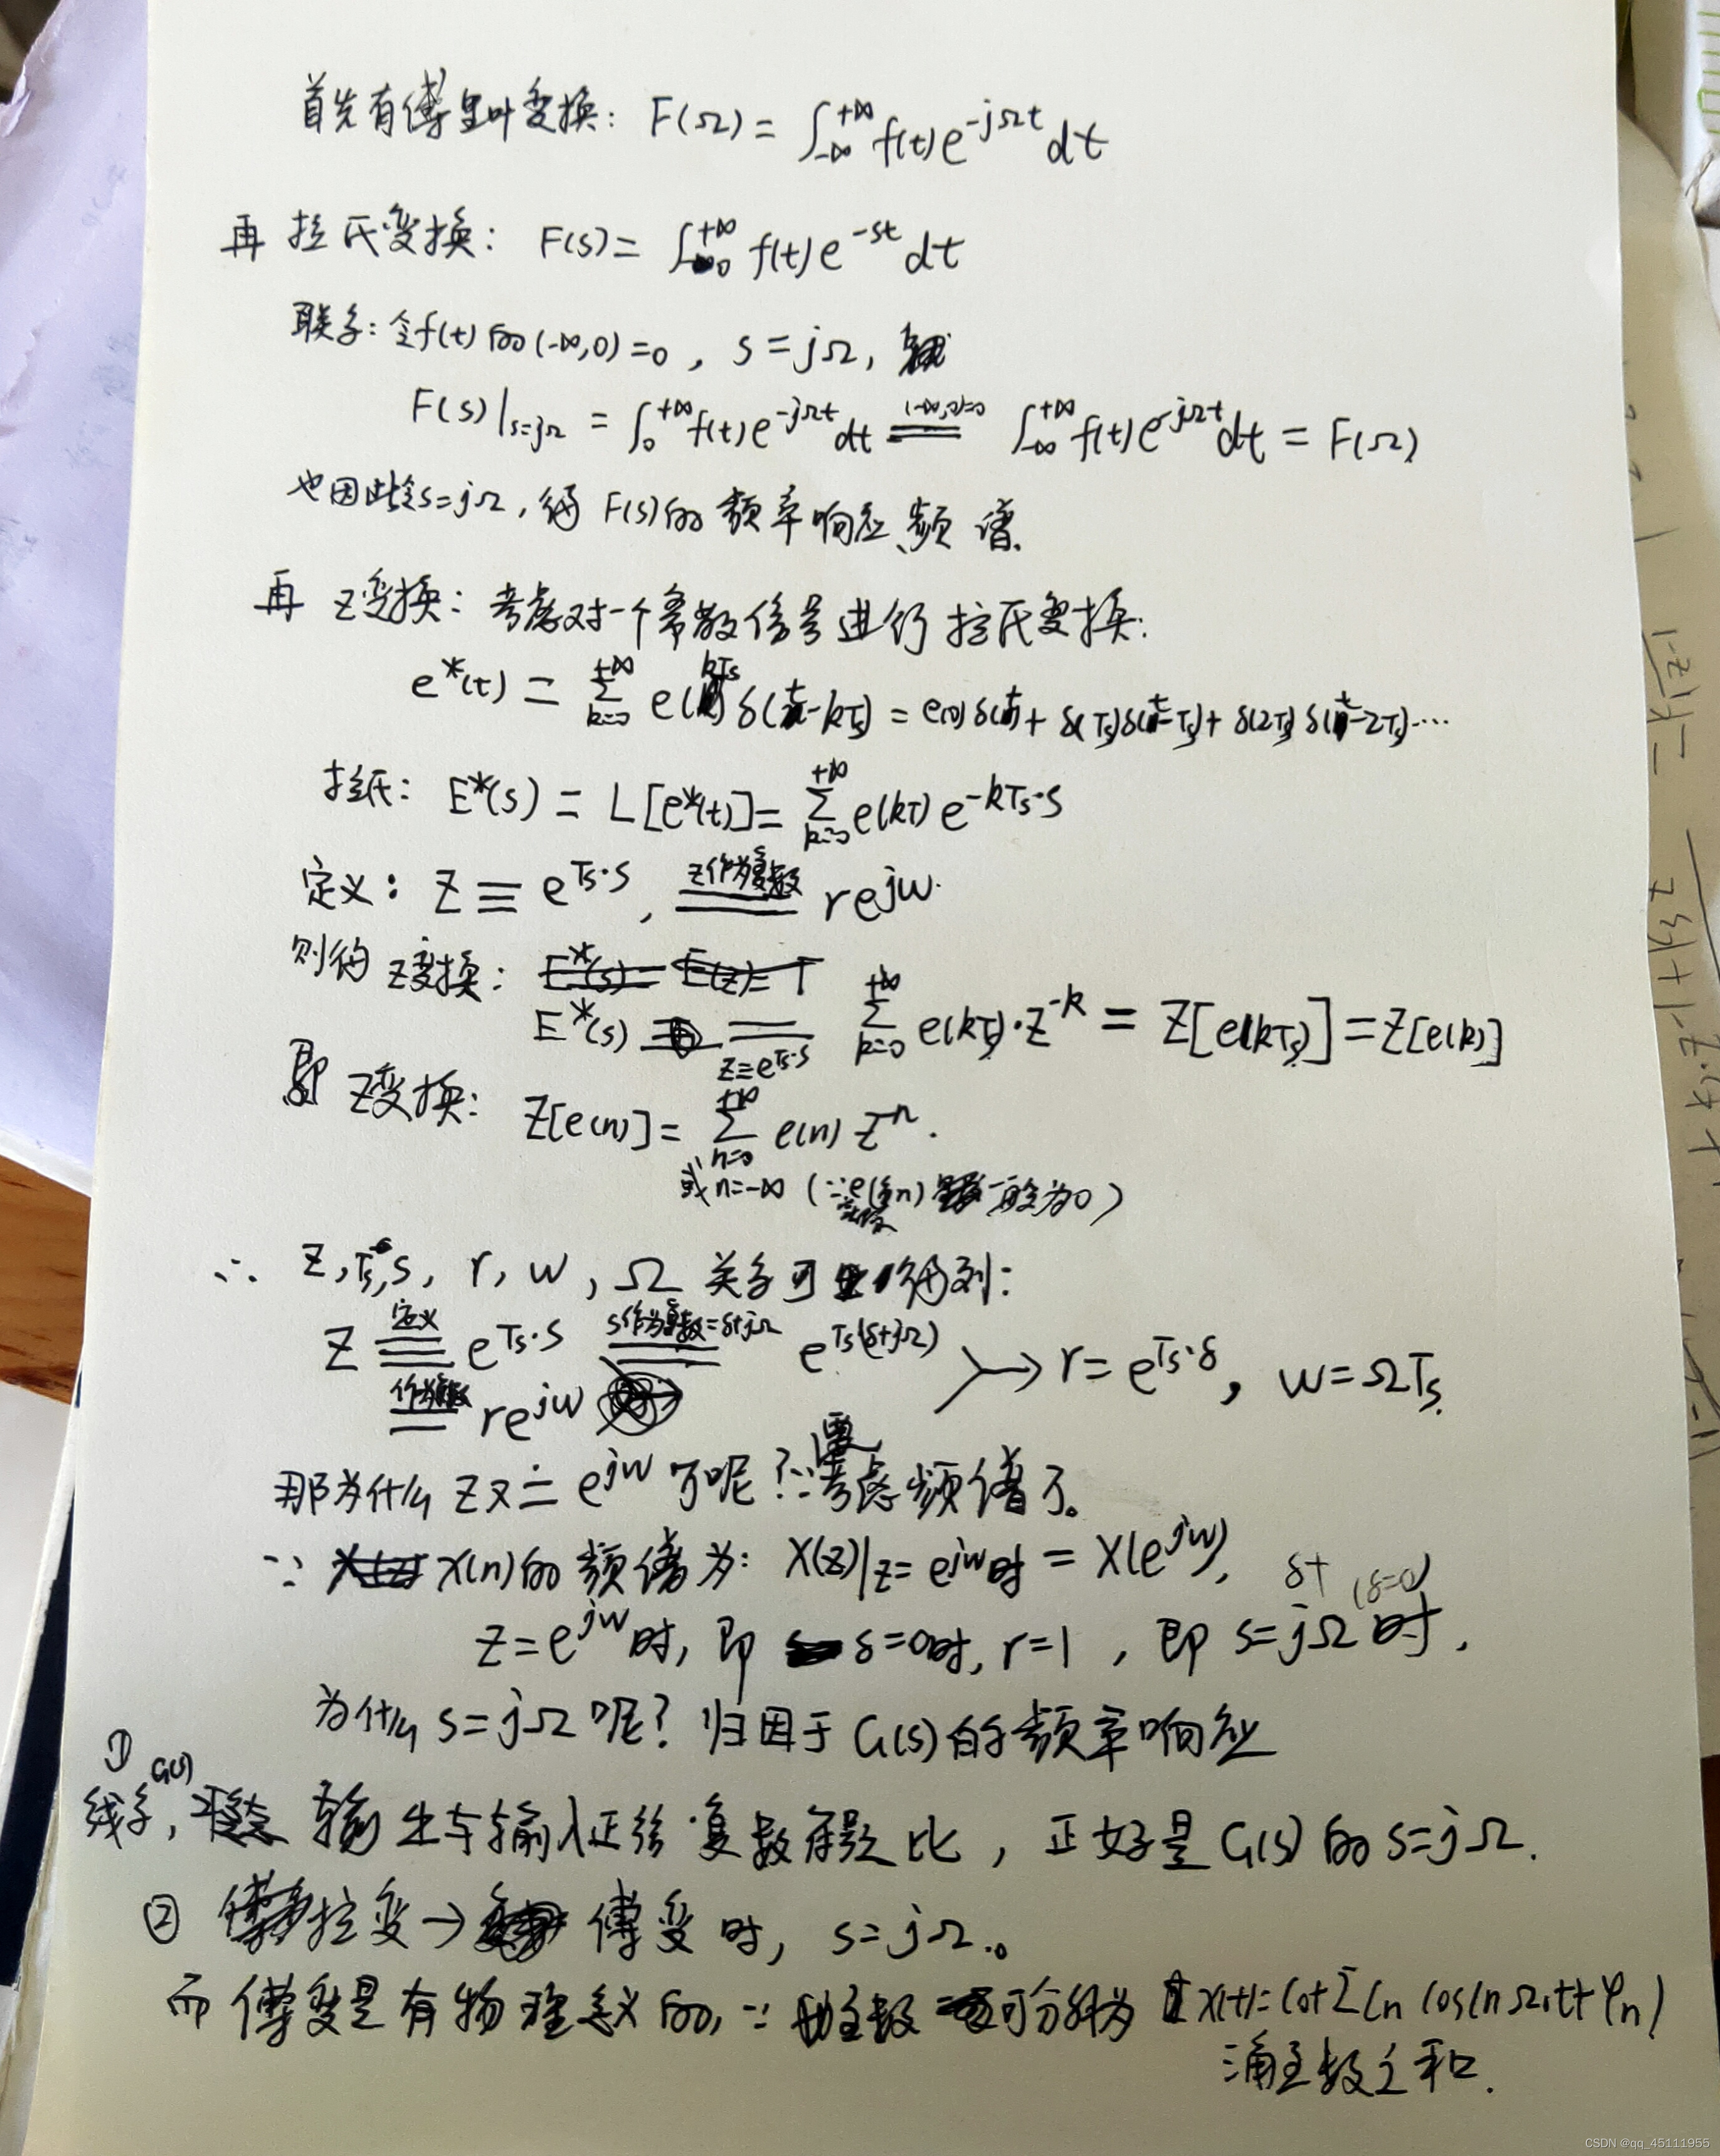 首先有傅里叶变换: F(Ω) = ∫_{-∞}^{+∞} f(t)e^{-jΩt}dt
再 拉氏变换: F(s) = ∫_0^{+∞} f(t)e^{-st}dt
联系: 令f(t)的(-∞,0)=0, s=jΩ,
F(s)|_{s=jΩ} = ∫_0^{+∞} f(t)e^{-jΩt}dt \overset{(-∞,0)=0}{=} ∫_{-∞}^{+∞} f(t)e^{-jΩt}dt = F(Ω)
也因此令s=jΩ, 得 F(s)的 频率响应、频谱.
再 Z变换: 考虑对一个离散信号进行拉氏变换:
e*(t) = Σ_{k=0}^{+∞} e(kTs)δ(t-kTs) = e(0)δ(t) + δ(Ts)δ(t-Ts) + δ(2Ts)δ(t-2Ts)…
拉氏: E*(s) = L[e*(t)] = Σ_{k=0}^{+∞} e(kT) e^{-kTs·s}
定义: Z ≡ e^{Ts·s}, \overset{z作为复数}{=} re^{jw}.
则得 Z变换:
E*(s) \underset{z≡e^{Ts·s}}{=} Σ_{k=0}^{+∞} e(kTs)·z^{-k} = Z[e(kTs)] = Z[e(k)]
即 Z变换: Z[e(n)] = Σ_{n=0}^{+∞} e(n) z^{-n}.
或n=-∞ (∵ 一般为0)
∴ Z, Ts, s, r, w, Ω 关系可 得到:
Z \overset{定义}{≡} e^{Ts·s} \overset{s作为复数=δ+jΩ}{=} e^{Ts(δ+jΩ)} → r = e^{Ts·δ}, w = ΩTs.
\overset{作为复数}{=} re^{jw}
那为什么 z又 = e^{jw} 了呢? ∵要考虑频谱了。
∵ x(n)的 频谱为: X(z)|_{z=e^{jw}时} = X(e^{jw}), δ+ (δ=0)
z=e^{jw}时, 即 δ=0时, r=1, 即 s=jΩ时,
为什么 s=jΩ 呢? 归因于 G(s)的频率响应
① 线系G(s), 输出与输入正弦复数 比, 正好是 G(s)的 s=jΩ.
② 拉变→ 傅变时, s=jΩ.。
而 傅变是有物理意义的, ∵ 函数 可分解为 x(t)=C0+ΣCn cos(nΩ1t+φn)
三角函数之和.
CSDN @qq_45111955